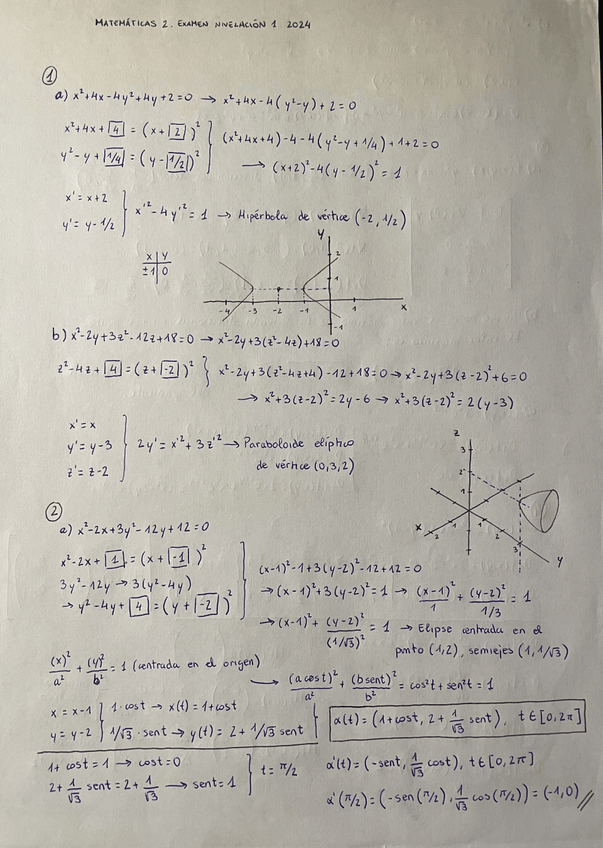 MATEMÁTICAS 2. EXAMEN NIVELACIÓN 1 2024
①
a) x²+4x-4y²+4y+2=0 → x²+4x-4(y²-y)+2=0
x²+4x+[4] = (x+[2])²
y²-y+[1/4] = (y-[1/2])²
(x²+4x+4)-4-4(y²-y+1/4)+1+2=0
→ (x+2)²-4(y-1/2)²=1
x'=x+2
y'=y-1/2
x'²-4y'²=1 → Hipérbola de vértice (-2, 1/2)
x | y
±1 | 0
y
2
1
-4 -3 -2 -1 1 x
-1
b) x²-2y+3z²-12z+18=0 → x²-2y+3(z²-4z)+18=0
z²-4z+[4] = (z+[-2])²
x²-2y+3(z²-4z+4)-12+18=0 → x²-2y+3(z-2)²+6=0
→ x²+3(z-2)²=2y-6 → x²+3(z-2)²=2(y-3)
x'=x
y'=y-3
z'=z-2
2y'=x'²+3z'² → Paraboloide elíptico
de vértice (0,3,2)
z
3
2
1
x 2 1 1 3 y
②
a) x²-2x+3y²-12y+12=0
x²-2x+[1]=(x+[-1])²
3y²-12y → 3(y²-4y)
→ y²-4y+[4]=(y+[-2])²
(x-1)²-1+3(y-2)²-12+12=0
→ (x-1)²+3(y-2)²=1 → (x-1)²/1 + (y-2)²/1/3 = 1
→ (x-1)²+ (y-2)²/(1/√3)² = 1 → Elipse centrada en el
punto (1,2), semiejes (1,1/√3)
(x)²/a² + (y)²/b² = 1 (centrada en el origen)
→ (a cost)²/a² + (b sent)²/b² = cos²t+sen²t=1
x = x-1
y = y-2
1·cost → x(t)=1+cost
1/√3·sent → y(t)=2+1/√3 sent
α(t)=(1+cost, 2+1/√3 sent), t∈[0,2π]
1+cost=1 → cost=0
2+1/√3 sent=2+1/√3 → sent=1
t=π/2
α'(t)=(-sent, 1/√3 cost), t∈[0,2π]
α'(π/2)=(-sen(π/2), 1/√3 cos(π/2))=(-1,0)//